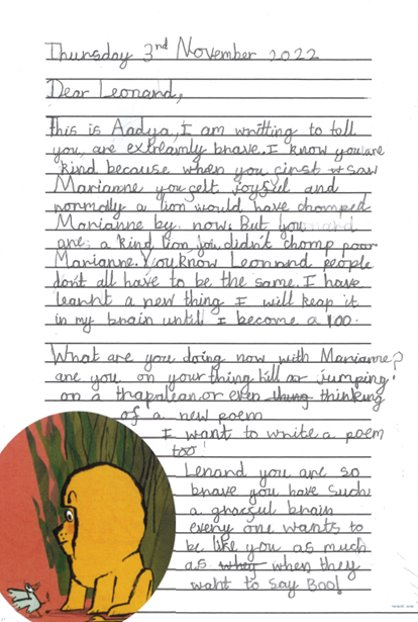 Thursday 3rd November 2022
Dear Leonard,
This is Aadya, I am writting to tell
you, are extreamly brave. I know you are
kind because when you first saw
Marianne you felt joyful and
normally a lion would have chomped
Marianne by now. But you
are a kind lion you didn't chomp poor
Marianne. You know Leonard people
don't all have to be the same. I have
learnt a new thing I will keap it
in my brain until I become a 100.
What are you doing now with Marianne?
are you on your thing hill or jumping
on a trapalean or even thing thinking
of a new poem
I want to write a poem
too
Lenard you are so
brave you have such
a graceful brain
every one wants to
be like you as much
as why when they
want to say Boo!